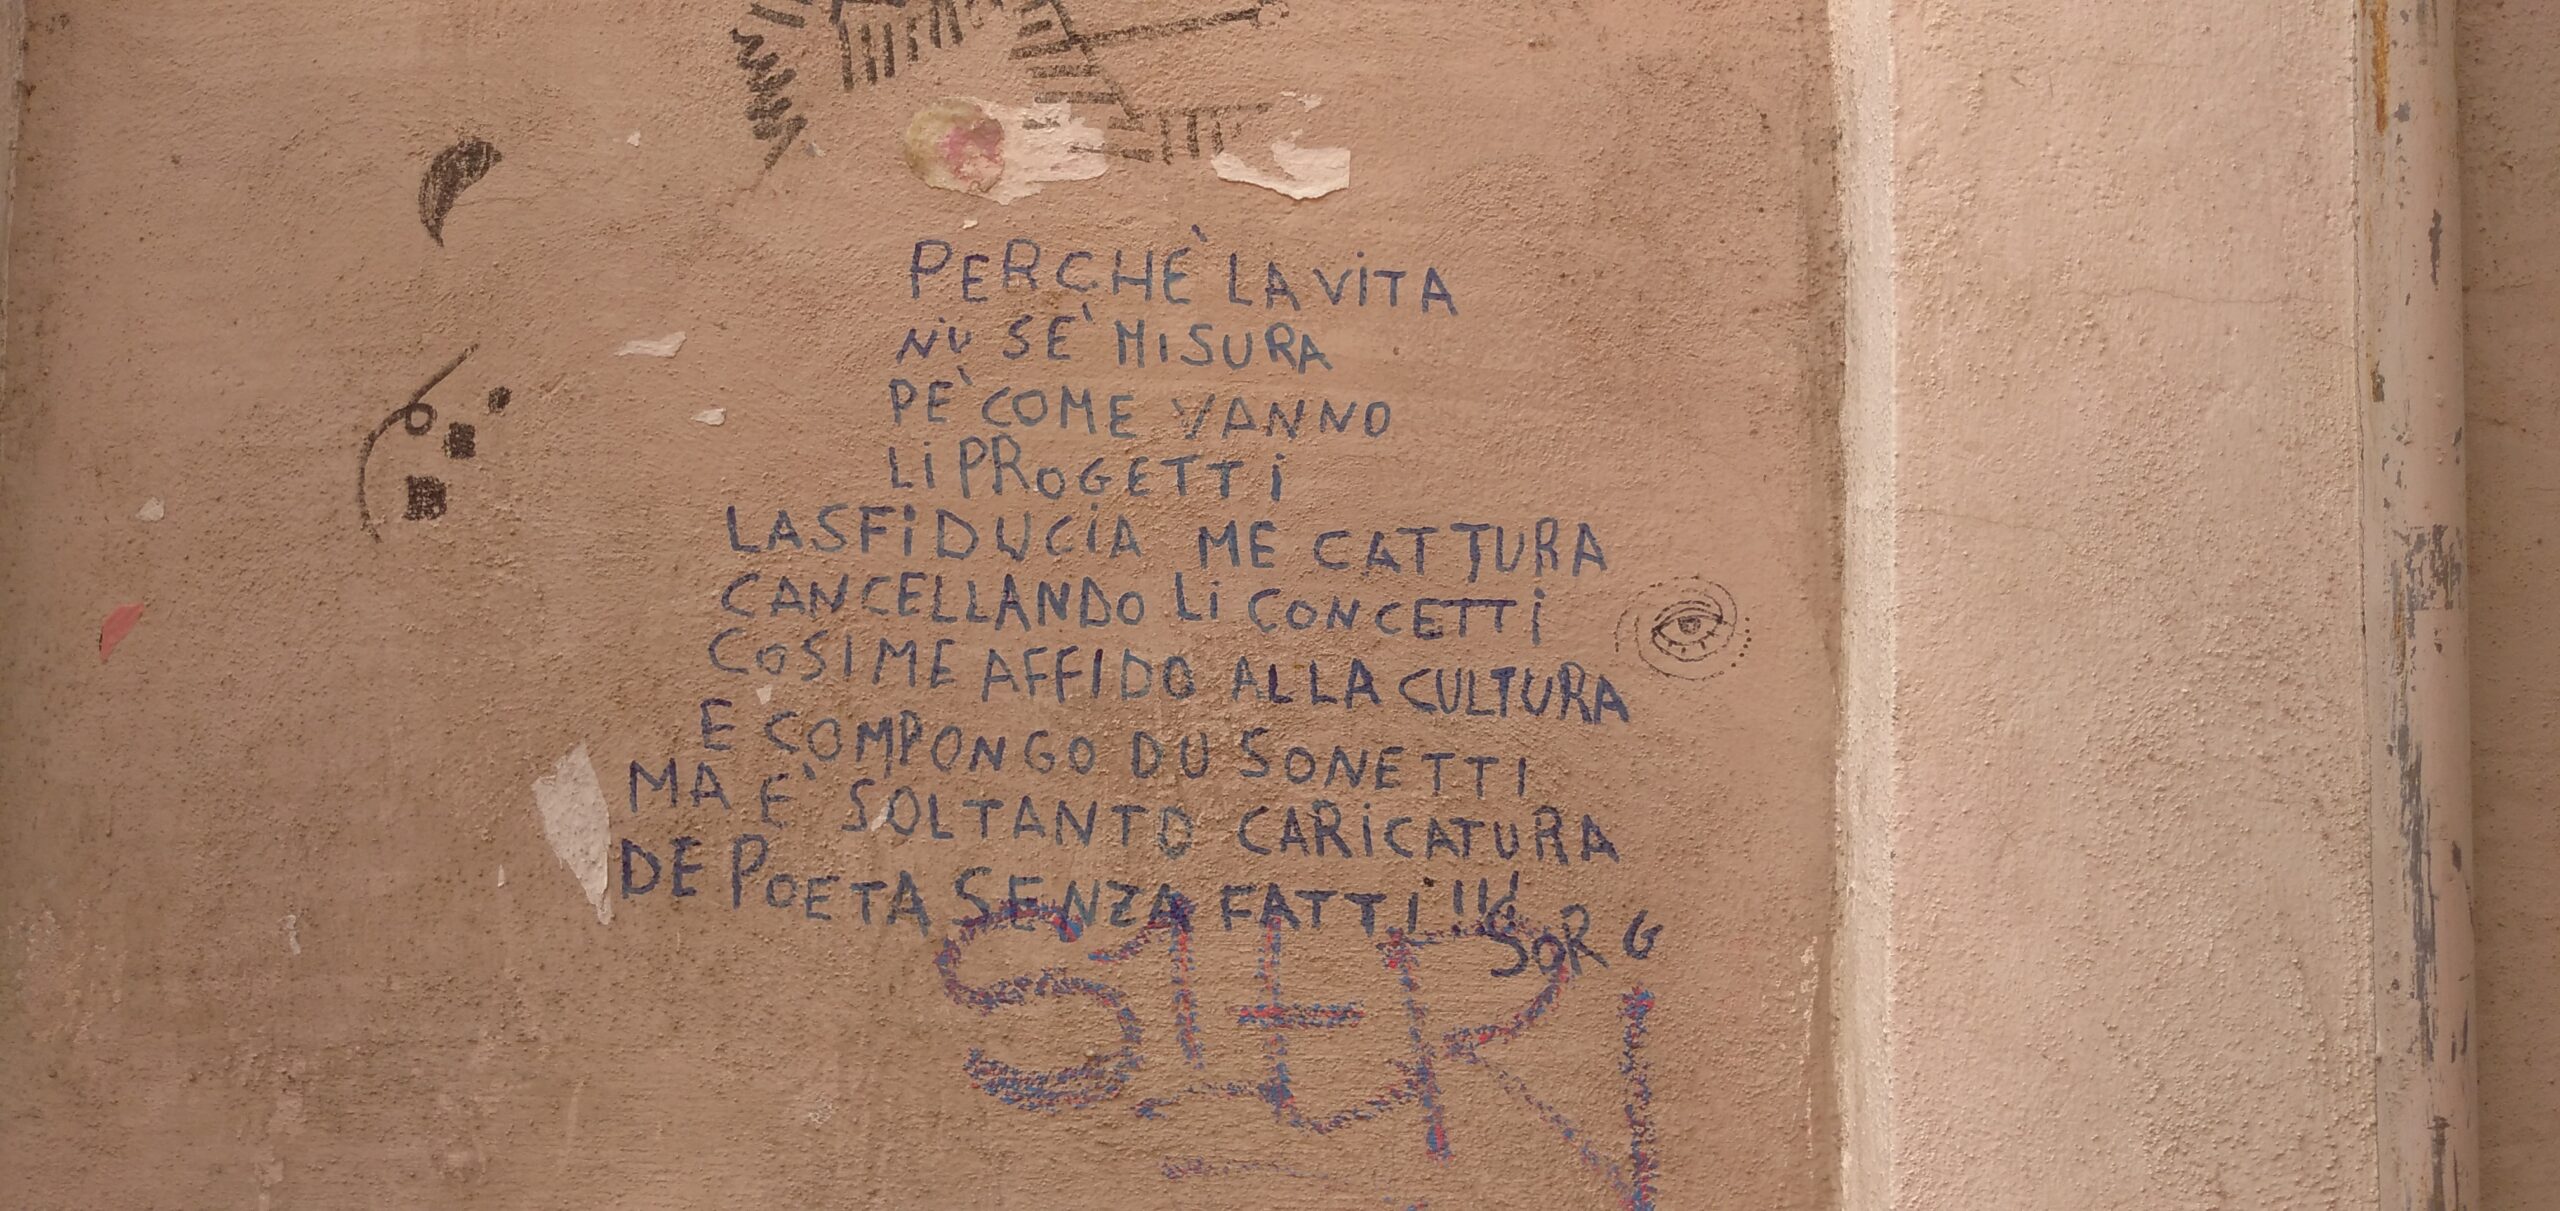 PERCHE' LA VITA
NU SE' MISURA
PE' COME VANNO
LI PROGETTI
LA SFIDUCIA ME CATTURA
CANCELLANDO LI CONCETTI
COSI ME AFFIDO ALLA CULTURA
E COMPONGO DU SONETTI
MA E' SOLTANTO CARICATURA
DE POETA SENZA FATTI!!!
SOR G